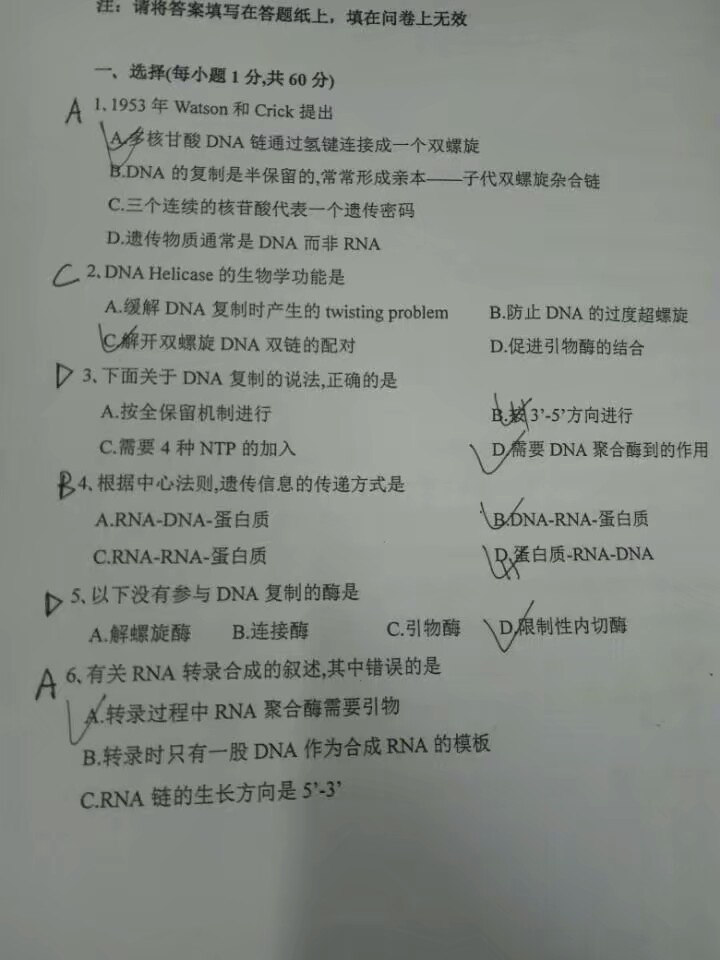 注：请将答案填写在答题纸上，填在问卷上无效
一、选择(每小题1分,共60分)
A 1、1953年 Watson 和 Crick 提出
A.多核苷酸 DNA 链通过氢键连接成一个双螺旋
B.DNA 的复制是半保留的,常常形成亲本——子代双螺旋杂合链
C.三个连续的核苷酸代表一个遗传密码
D.遗传物质通常是 DNA 而非 RNA
C 2、DNA Helicase 的生物学功能是
A.缓解 DNA 复制时产生的 twisting problem B.防止 DNA 的过度超螺旋
C.解开双螺旋 DNA 双链的配对 D.促进引物酶的结合
D 3、下面关于 DNA 复制的说法,正确的是
A.按全保留机制进行 B.按 3’-5’方向进行
C.需要 4 种 NTP 的加入 D.需要 DNA 聚合酶到的作用
B 4、根据中心法则,遗传信息的传递方式是
A.RNA-DNA-蛋白质 B.DNA-RNA-蛋白质
C.RNA-RNA-蛋白质 D.蛋白质-RNA-DNA
D 5、以下没有参与 DNA 复制的酶是
A.解螺旋酶 B.连接酶 C.引物酶 D.限制性内切酶
A 6、有关 RNA 转录合成的叙述,其中错误的是
A.转录过程中 RNA 聚合酶需要引物
B.转录时只有一股 DNA 作为合成 RNA 的模板
C.RNA 链的生长方向是 5’-3’